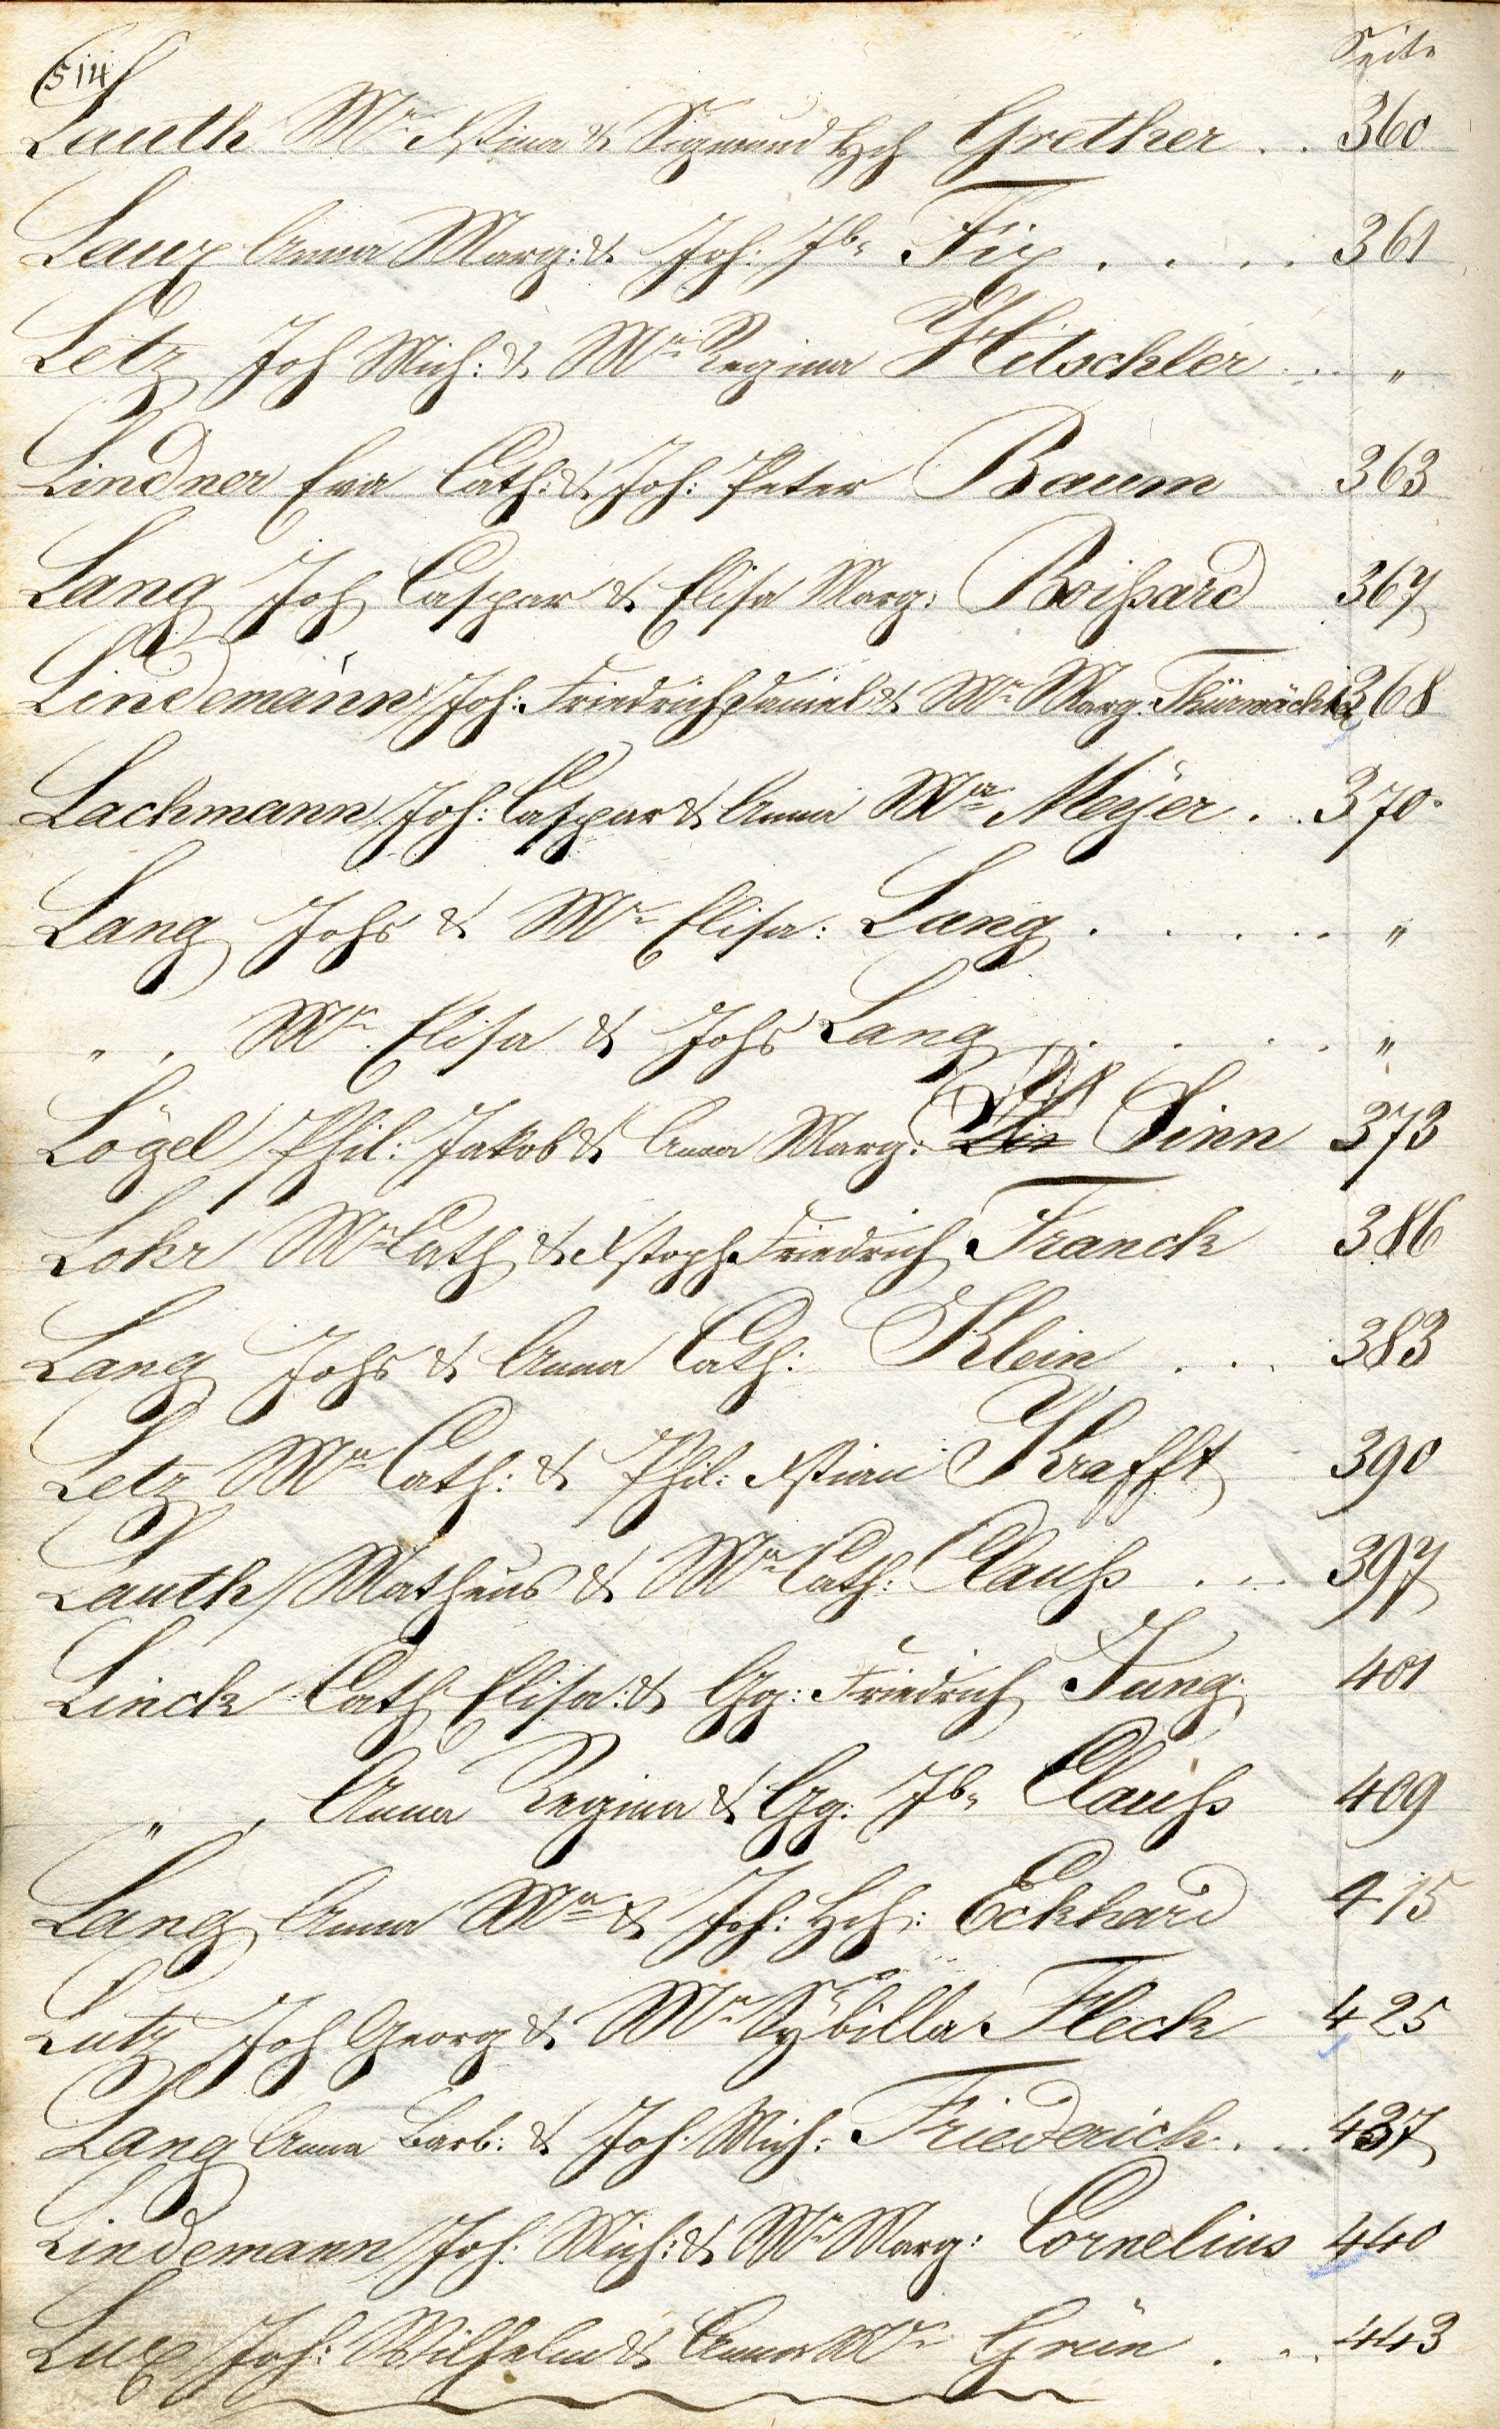 514 Seite
Lauth Mra Xstina & Sigmund Hch Grether . . 360
Laux Anna Marg: & Joh: Jb: Fix . . . . 361
Letz Joh Mich: & Mra Regina Hitschler . . . "
Lindner Eva Cath: & Joh: Peter Baum 363
Lang Joh Caspar & Elisa Marg: Boißard 367
Lindemann Joh: Friedrich Daniel & Mra Marg: Thürwächter 368
Lachmann Joh: Caspar & Anna Mra Meÿer . . 370.
Lang Johs & Mra Elisa: Lang . . . . . "
" " Mra Elisa & Johs Lang . . . . "
Lögel Phil: Jakob & Anna Marg: Sinn 373
Lohr Mra Cath & Xstoph Friedrich Franck 386
Lang Johs & Anna Cath: Klein . . . 383
Letz Mra Cath: & Phil: Xstian Krafft 390
Lauth Matheus & Mra Cath: Clauß . . . 397
Linck Cath Elisa: & Gg: Friedrich Jung. 401
" " Anna Regina & Gg: Jb: Clauß 409
Lang Anna Mra & Joh: Hch: Eckhard 415
Lutz Joh Georg & Mra Sybilla Fleck 425
Lang Anna Barb: & Joh: Mich: Friederich . . . 437
Lindemann Joh: Mich: & Mra Marg: Cornelius 440
Lux Joh: Wilhelm & Anna Mra Grün . . . 443